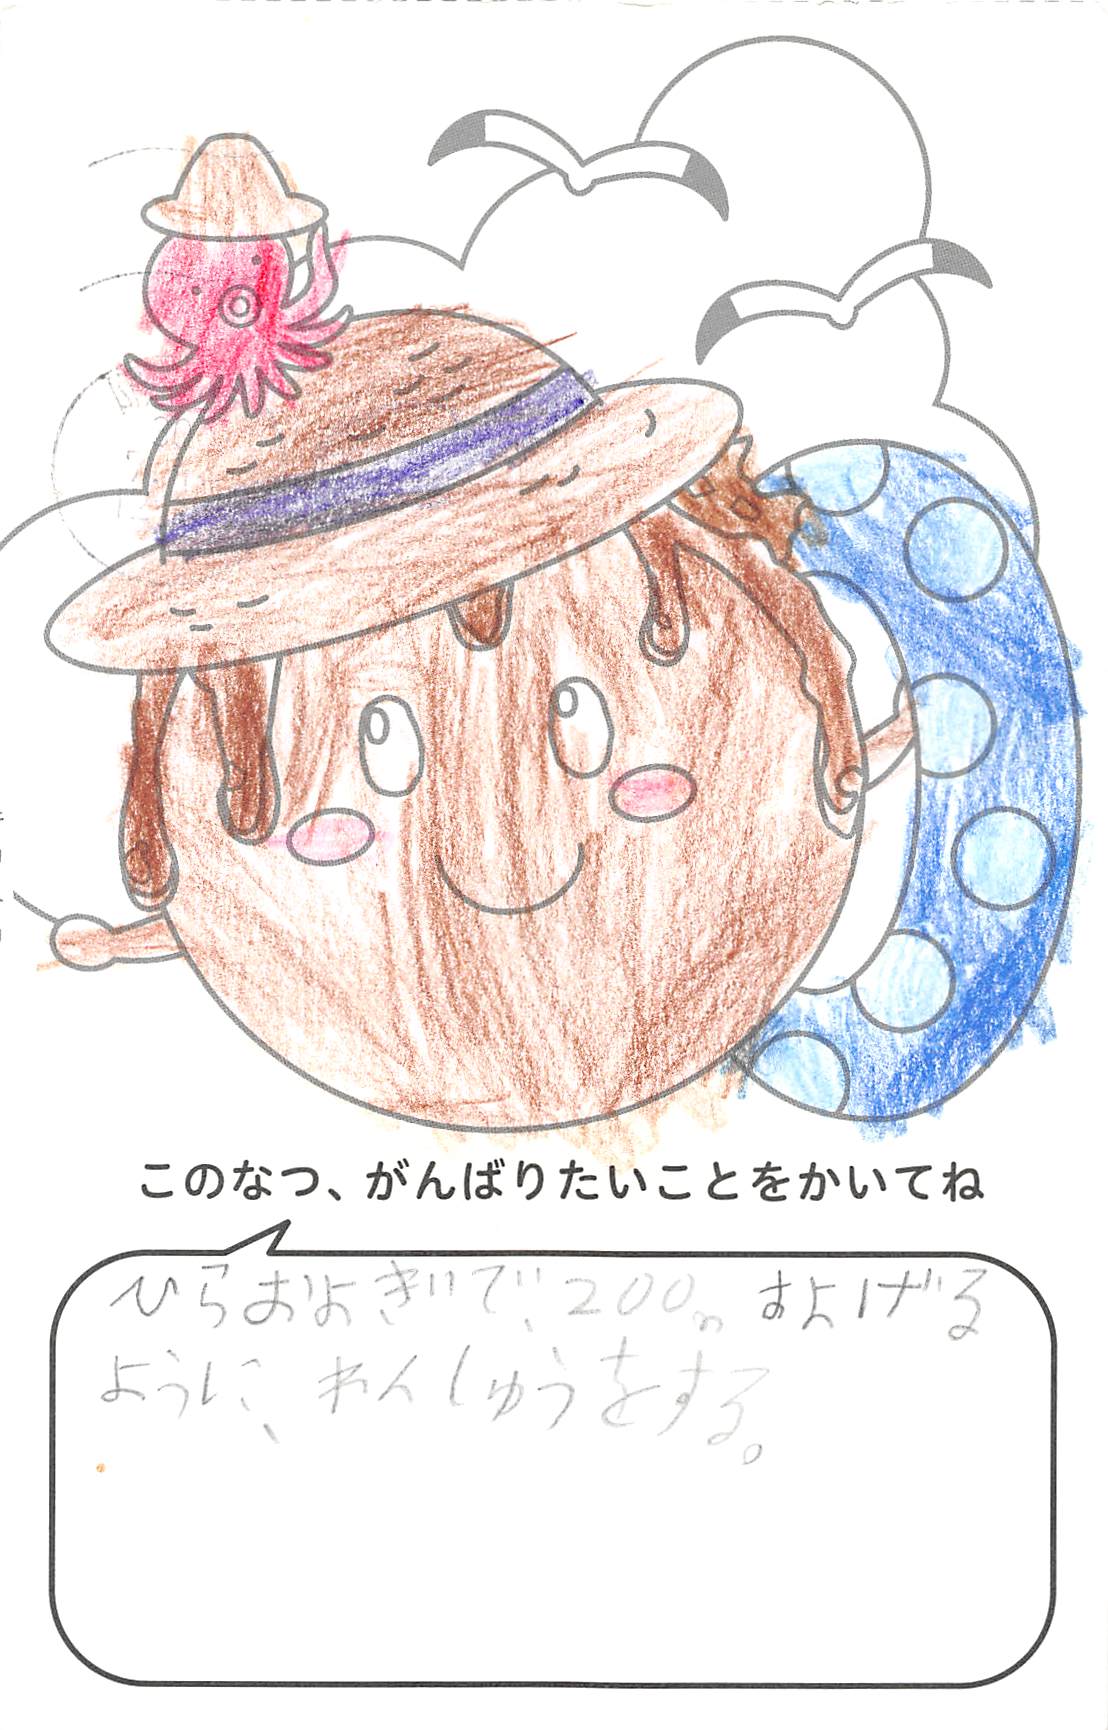 このなつ、がんばりたいことをかいてね
ひらおよぎで、200m およげる
ように、れんしゅうをする。